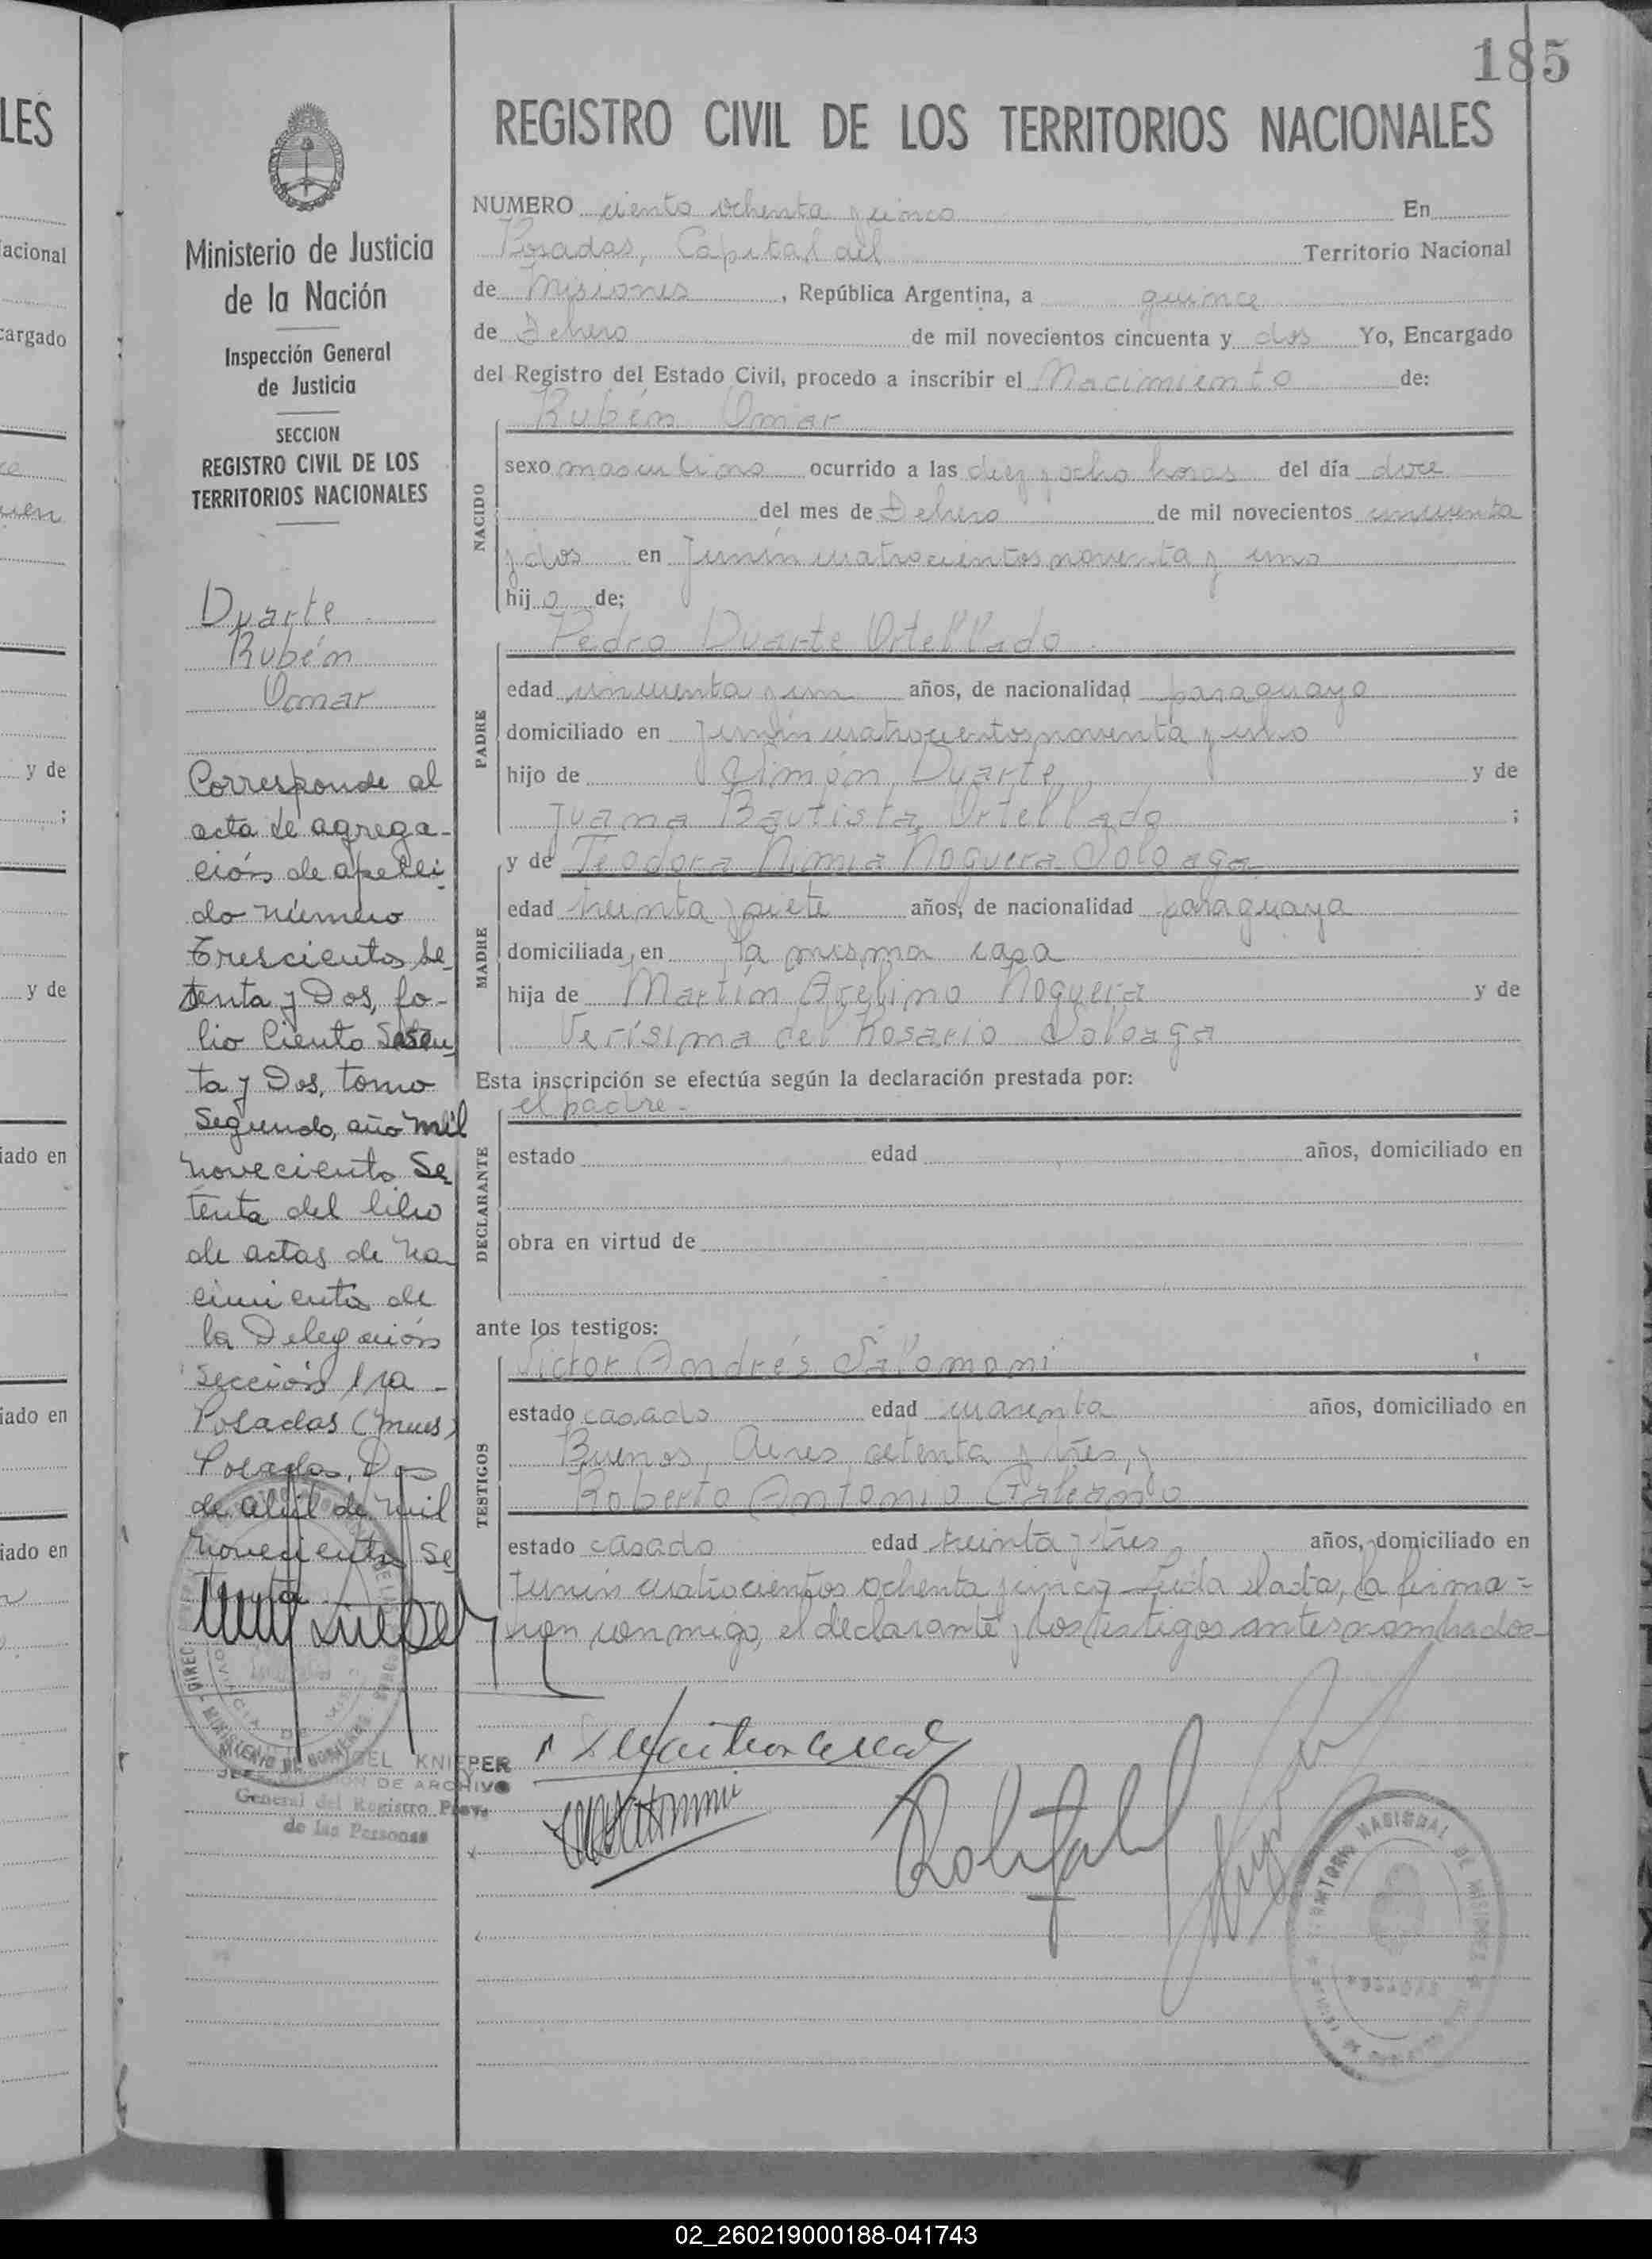 185
REGISTRO CIVIL DE LOS TERRITORIOS NACIONALES
Ministerio de Justicia
de la Nación
Inspección General
de Justicia
SECCION
REGISTRO CIVIL DE LOS
TERRITORIOS NACIONALES
Duarte
Rubén
Omar
Corresponde al
acta de agrega-
ción de apelli-
do número
Trescientos se-
tenta y Dos, fo-
lio Ciento Sesen
ta y Dos, tomo
Segundo, año mil
novecientos Se
tenta del libro
de actas de na
cimientos de
la Delegación
Sección 1ra -
Posadas (Mnes)
Posadas, Dos
de abril de mil
novecientos se
tenta
KNIEPER
DE ARCHIVO
General del Registro Prov.
de las Personas
NUMERO ciento ochenta y cinco En
Posadas, Capital del Territorio Nacional
de Misiones, República Argentina, a quince
de Febrero de mil novecientos cincuenta y dos Yo, Encargado
del Registro del Estado Civil, procedo a inscribir el Nacimiento de:
Rubén Omar
NACIDO
sexo masculino ocurrido a las diez y ocho horas del día doce
del mes de Febrero de mil novecientos cincuenta
y dos en Junín cuatrocientos noventa y uno
hijo de;
Pedro Duarte Ortellado
PADRE
edad cincuenta y un años, de nacionalidad paraguayo
domiciliado en Junín cuatrocientos noventa y uno
hijo de Simón Duarte y de
Juana Bautista Ortellado ;
y de Teodora Nimia Noguera Doloaga
MADRE
edad treinta y siete años, de nacionalidad paraguaya
domiciliada en la misma casa
hija de Martín Avelino Noguera y de
Verísima del Rosario Doloaga
Esta inscripción se efectúa según la declaración prestada por:
el padre -
DECLARANTE
estado edad años, domiciliado en
obra en virtud de
ante los testigos:
Víctor Andrés Salomoni
TESTIGOS
estado casado edad cuarenta años, domiciliado en
Buenos Aires setenta y tres, y
Roberto Antonio Galeano
estado casado edad treinta y tres, años, domiciliado en
Junín cuatrocientos ochenta y cinco. Leída el acta, la firma=
ron conmigo, el declarante y los testigos antes nombrados
LES
acional
cargado
y de
;
y de
iado en
iado en
iado en
02_260219000188-041743